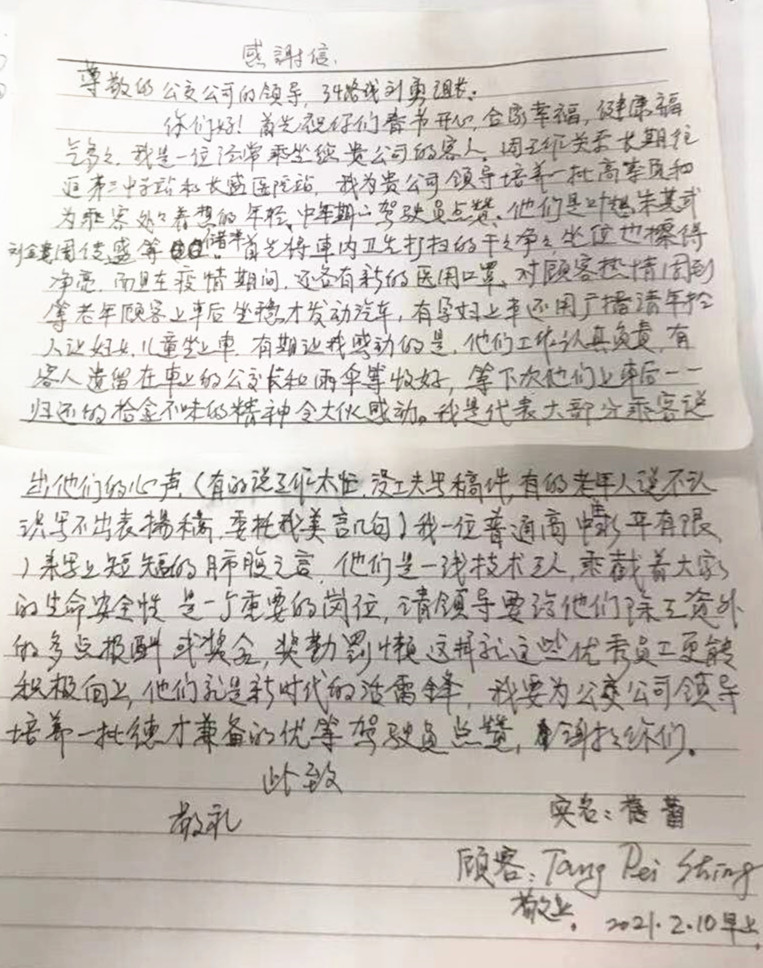 感謝信.
尊敬的公交公司的领导, 34路线刘勇组长:
你们好! 首先祝你们春节开心, 合家幸福, 健康福
气多多. 我是一位经常乘坐 贵公司的客人. 因工作关系长期往
返第二中学站和长盛医院站, 我为贵公司领导培养一批高素质和
为乘客处々着想的年轻、中年 驾驶员点赞. 他们是叶 朱其武
刘 周传盛等 首先将車内卫生打扫的干々净々坐位也擦得
净亮, 而且在疫情期间, 还备有新的医用口罩. 对顾客热情周到
等老年顾客上车后坐稳才发动汽车, 有孕妇上车还用广播请年轻
人让妇女、儿童坐上車. 有期让我感动的是, 他们工作认真负责, 有
客人遗留在車上的公交卡和雨伞等收好, 等下次他们上車后一一
归还的拾金不昧的精神令大伙感动. 我是代表大部分乘客说
出他们的心声. (有的说工作太忙, 没工夫写稿件, 有的老年人说不认
识写不出表揚稿, 委托我美言几句) 我一位普通高中 水平有限,
) 来写上短短的肺腑之言, 他们是一线技术工人, 乘载着大家
的生命安全性 是一个重要的岗位, 请领导要给他们除工资外
的多点报酬或奖金, 奖勤罰懒 这样就这些优秀员工更能
积极向上, 他们就是新时代的活雷锋, 我要为公交公司领导
培养一批德才兼备的优等驾驶员点赞, 谢谢你们.
此致
敬礼
实名:
顾客: Tang Pei
敬上. 2021.2.10早上.